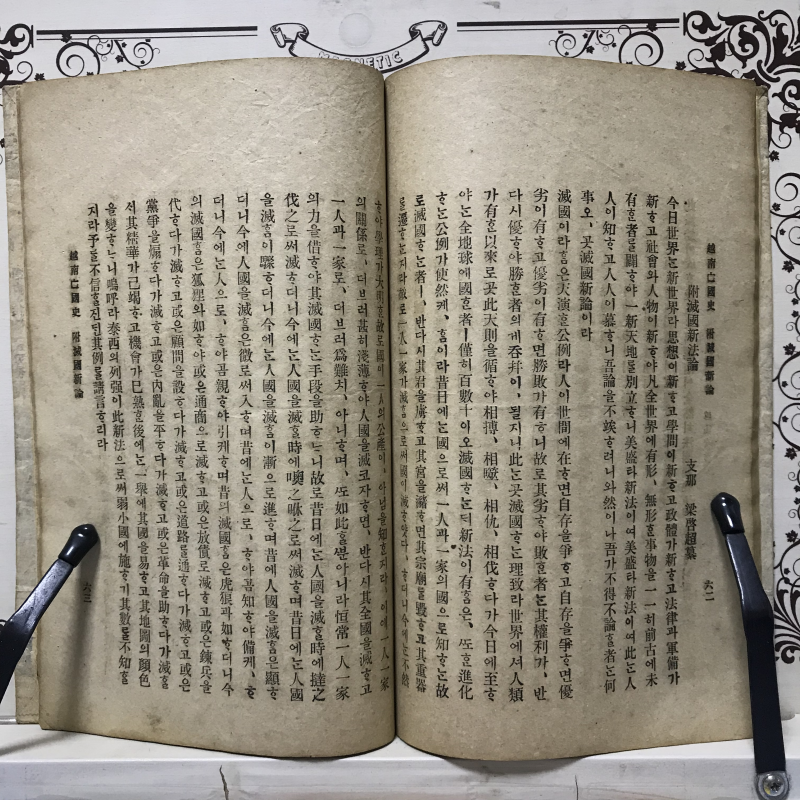 MAGNETIC
越南亡國史 附滅國新論 六二
附滅國新法論 支那 梁啓超纂
今日世界는新世界라思想이新ᄒᆞ고學問이新ᄒᆞ고政體가新ᄒᆞ고法律과軍備가
新ᄒᆞ고社會와人物이新ᄒᆞ야凡全世界에有形、無形ᄒᆞᆫ事物을一一히前古에未
有ᄒᆞᆫ者를闢ᄒᆞ야一新天地를別立ᄒᆞ니美盛라新法이여美盛라新法이여此는人
人이知ᄒᆞ고人人이慕ᄒᆞ니吾論을不竢ᄒᆞ려니와然이나吾가不得不論ᄒᆞᆯ者는何
事오、곳滅國新論이라
滅國이라ᄒᆞᆷ은天演ᄒᆞᄂᆞᆫ公例라人이世間에在ᄒᆞ면自存을爭ᄒᆞ고自存을爭ᄒᆞ면優
劣이有ᄒᆞ고優劣이有ᄒᆞ면勝敗가有ᄒᆞ니故로其劣ᄒᆞ야敗ᄒᆞᆫ者는其權利가、반
다시優ᄒᆞ야勝ᄒᆞᆫ者의게吞幷이、될지니此는곳滅國ᄒᆞ는理致라世界에셔人類
가有ᄒᆞᆷ以來로곳此天則을循ᄒᆞ야相搏、相噬、相仇、相伐ᄒᆞ다가今日에至ᄒᆞ
야는全地球에國ᄒᆞᆫ者ㅣ僅히百數十이오滅國ᄒᆞ는ᄃᆡ新法이有ᄒᆞᆷ은、ᄯᅩᄒᆞᆫ進化
ᄒᆞ는公例가使然케、ᄒᆞᆷ이라昔日에는國으로써一人과一家의國으로知ᄒᆞ는故
로滅國ᄒᆞ는者ㅣ、반다시其君을虜ᄒᆞ고其宮을瀦ᄒᆞ면其宗廟를毁ᄒᆞ고其重器
를遷ᄒᆞ는지라故로一人一家가滅ᄒᆞᆷ으로써國이滅ᄒᆞ얏다、ᄒᆞ더니今에는不然
ᄒᆞ야學理가大明ᄒᆞᆫ故로國이一人의公產이、아님을知ᄒᆞᆯ지라이에一人一家
의關係로、더브러甚히淺薄ᄒᆞ야人國을滅코자ᄒᆞ면、반다시其全國을滅ᄒᆞ고
一人과一家로、더브러爲難치、아니ᄒᆞ며、ᄯᅩ如此ᄒᆞᆯᄲᅮᆫ아니라恒常一人一家
의力을借ᄒᆞ야其滅國ᄒᆞ는手段을助ᄒᆞ는니故로昔日에는人國을滅ᄒᆞᆯ時에撻之
伐之로써滅ᄒᆞ더니今에는人國을滅ᄒᆞᆯ時에噢之咻之로써滅ᄒᆞ며昔日에는人國
을滅ᄒᆞᆷ이驟ᄒᆞ더니今에는人國을滅ᄒᆞᆷ이漸으로進ᄒᆞ며昔에人國을滅ᄒᆞᆷ은顯ᄒᆞ
더니今에人國을滅ᄒᆞᆷ은微로써入ᄒᆞ며昔에는人으로、ᄒᆞ야곰知ᄒᆞ야備케、ᄒᆞ
더니今에는人으로、ᄒᆞ야곰親ᄒᆞ야引케ᄒᆞ며昔의滅國ᄒᆞᆷ은虎狼과如ᄒᆞ더니今
의滅國ᄒᆞᆷ은狐狸와如ᄒᆞ야或은通商으로滅ᄒᆞ고或은放債로滅ᄒᆞ고或은鍊兵을
代ᄒᆞ다가滅ᄒᆞ고或은顧問을設ᄒᆞ다가滅ᄒᆞ고或은道路를通ᄒᆞ다가滅ᄒᆞ고或은
黨爭을煽ᄒᆞ다가滅ᄒᆞ고或은內亂을平ᄒᆞ다가滅ᄒᆞ고或은革命을助ᄒᆞ다가滅ᄒᆞᆯ
ᄉᆡ其精華가已竭ᄒᆞ고機會가已熟ᄒᆞᆫ後에는一舉에其國을易ᄒᆞ고其地圖의顏色
을變ᄒᆞ는니嗚呼라泰西의列强이此新法으로써弱小國에施ᄒᆞᆷ이其數를不知ᄒᆞᆯ
지라予를不信ᄒᆞᆯ진ᄃᆡ其例를請言ᄒᆞ리라
越南亡國史 附滅國新論 六三